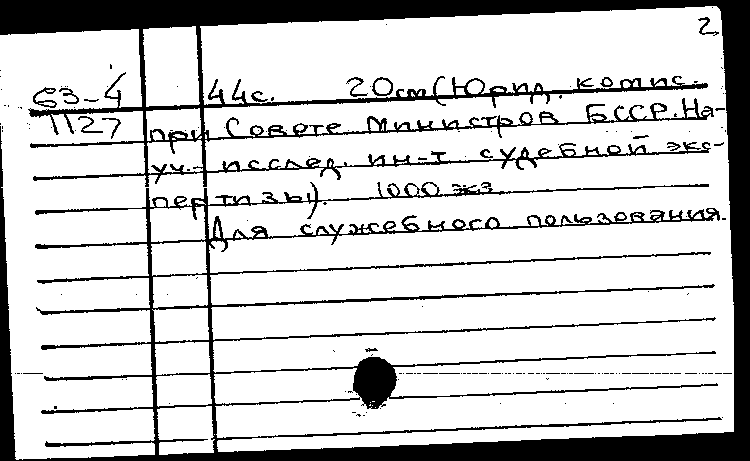 2
63-4 44с. 20см (Юрид. комис.
1127 при Совете Министров БССР. На-
уч.-исслед. ин-т судебной экс-
пертизы). 1000 экз.
Для служебного пользования.